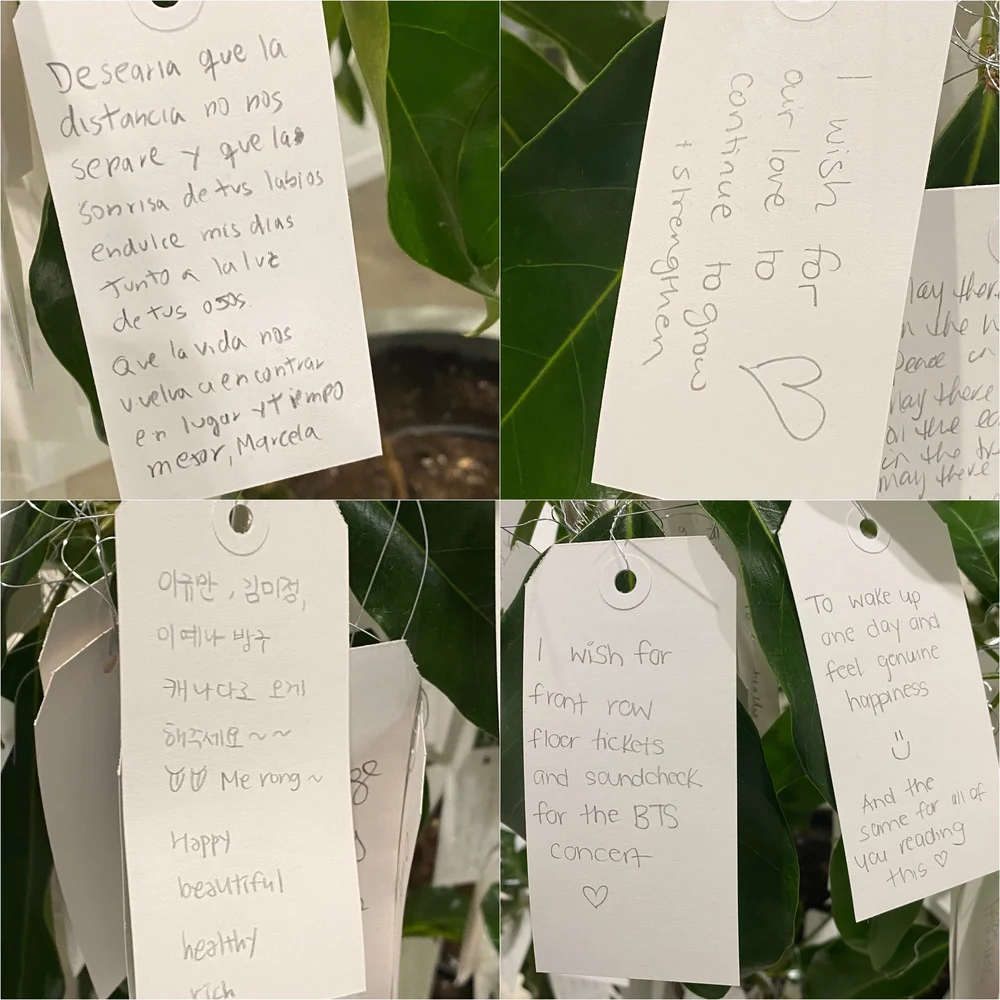 Desearia que la
distancia no nos
separe y que la
sonrisa de tus labios
endulce mis dias
junto a la luz
de tus osos.
Que la vida nos
vuelva a encontrar
en lugar y tiempo
mesor, Marcela
I wish for
our love to
continue to grow
+ strengthen
may there
이규만, 김미정,
이예나 방구
캐나다로 오게
해주세요~~
Me rong~
Happy
beautiful
healthy
rich
I wish for
front row
floor tickets
and soundcheck
for the BTS
concert
To wake up
one day and
feel genuine
happiness
And the
same for all of
you reading
this